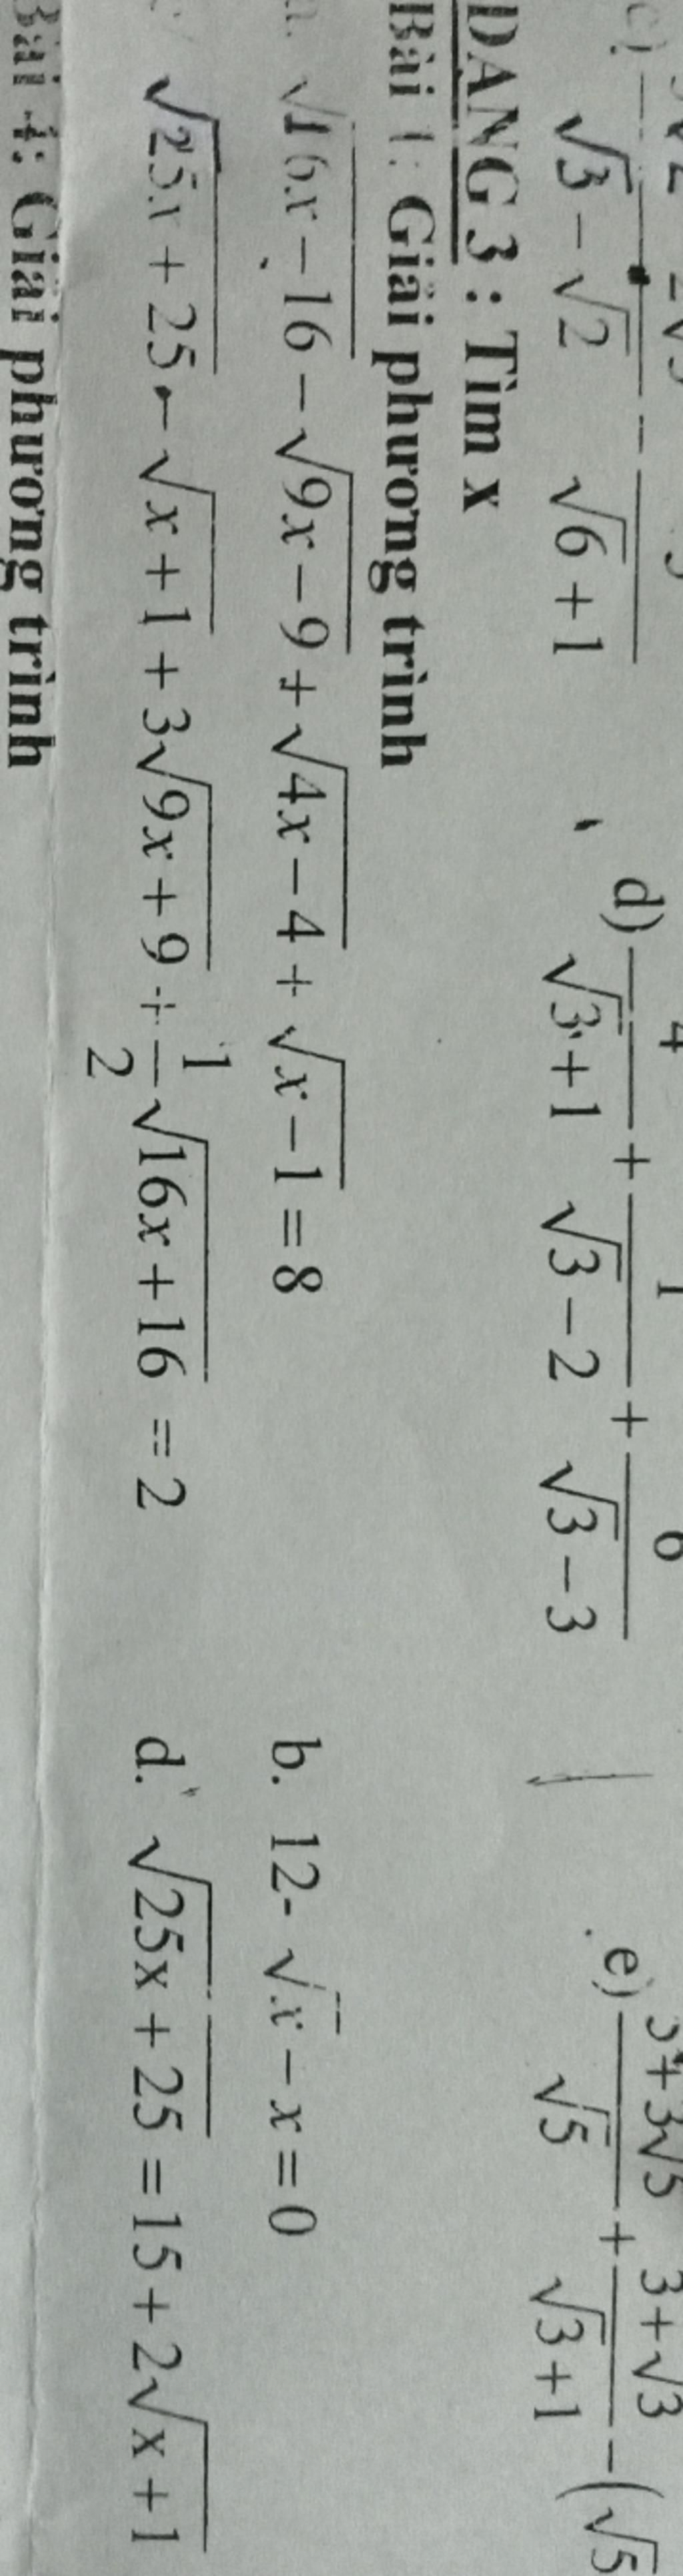 c) √3 − √2 − √6 + 1 d) 4/(√3 + 1) + 1/(√3 − 2) + 6/(√3 − 3) e) (5 + 3√5)/√5 + (3 + √3)/(√3 + 1) − (√5
DẠNG 3 : Tìm x
Bài 1: Giải phương trình
a. √(16x − 16) − √(9x − 9) + √(4x − 4) + √(x − 1) = 8 b. 12- √x − x = 0
√(25x + 25) − √(x + 1) + 3√(9x + 9) + 1/2 √(16x + 16) = 2 d. √(25x + 25) = 15 + 2√(x + 1)
Bài 4: Giải phương trình